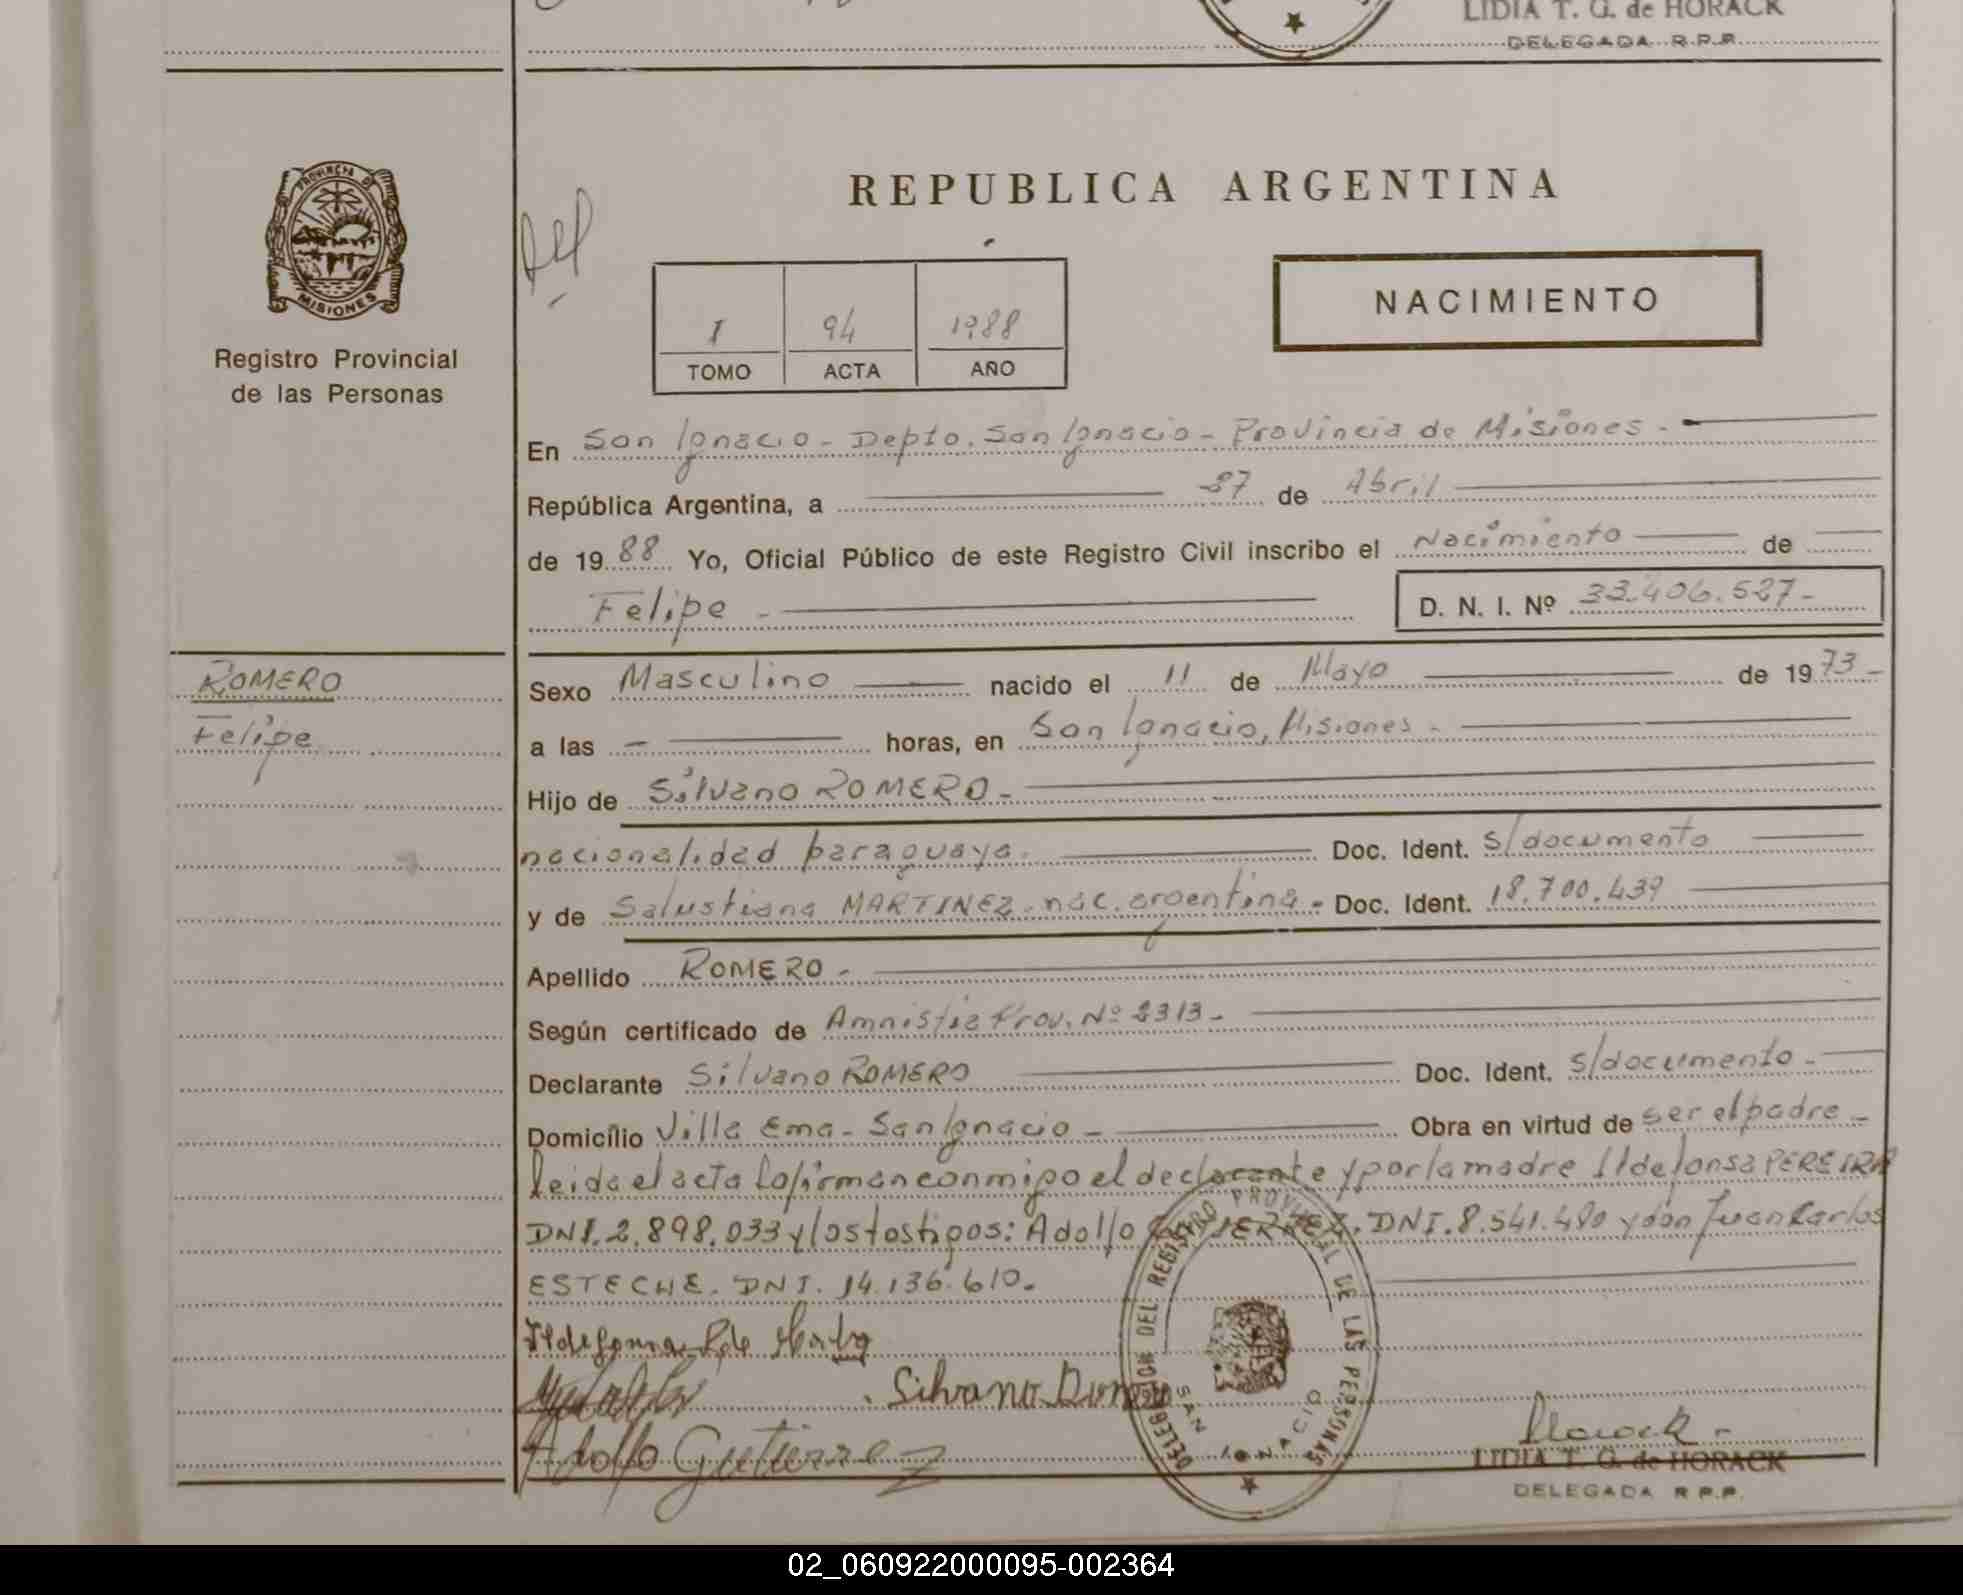 LIDIA T. G. de HORACK
DELEGADA R.P.P.
PROVINCIA DE
MISIONES
Registro Provincial
de las Personas
REPUBLICA ARGENTINA
I 94 1988
TOMO ACTA AÑO
NACIMIENTO
En San Ignacio - Depto. San Ignacio - Provincia de Misiones. -
República Argentina, a 27 de Abril
de 1988 Yo, Oficial Público de este Registro Civil inscribo el Nacimiento de
Felipe - D. N. I. Nº 33.406.527-
ROMERO
Felipe
Sexo Masculino nacido el 11 de Mayo de 1973-
a las - horas, en San Ignacio, Misiones -
Hijo de Silvano ROMERO -
nacionalidad paraguaya. Doc. Ident. s/documento
y de Salustiana MARTINEZ - nac. argentina - Doc. Ident. 18.700.439
Apellido ROMERO -
Según certificado de Amnistia Prov. Nº 2313 -
Declarante Silvano ROMERO Doc. Ident. s/documento -
Domicilio Villa Ema - San Ignacio - Obra en virtud de ser el padre -
leida el acta la firman conmigo el declarante y por la madre Ildefonsa PEREIRA
DNI. 2.898.033 y los tostigos: Adolfo GUTIERREZ. DNI. 8.541.480 y don Juan Carlos
ESTECHE. DNI. 14.136.610.
Ildefonsa P. de
Silvano Romero
Adolfo Gutierrez
DELEGACION DEL REGISTRO PROVINCIAL DE LAS PERSONAS
SAN IGNACIO
Horack -
LIDIA T. G. de HORACK
DELEGADA R.P.P.
02_060922000095-002364